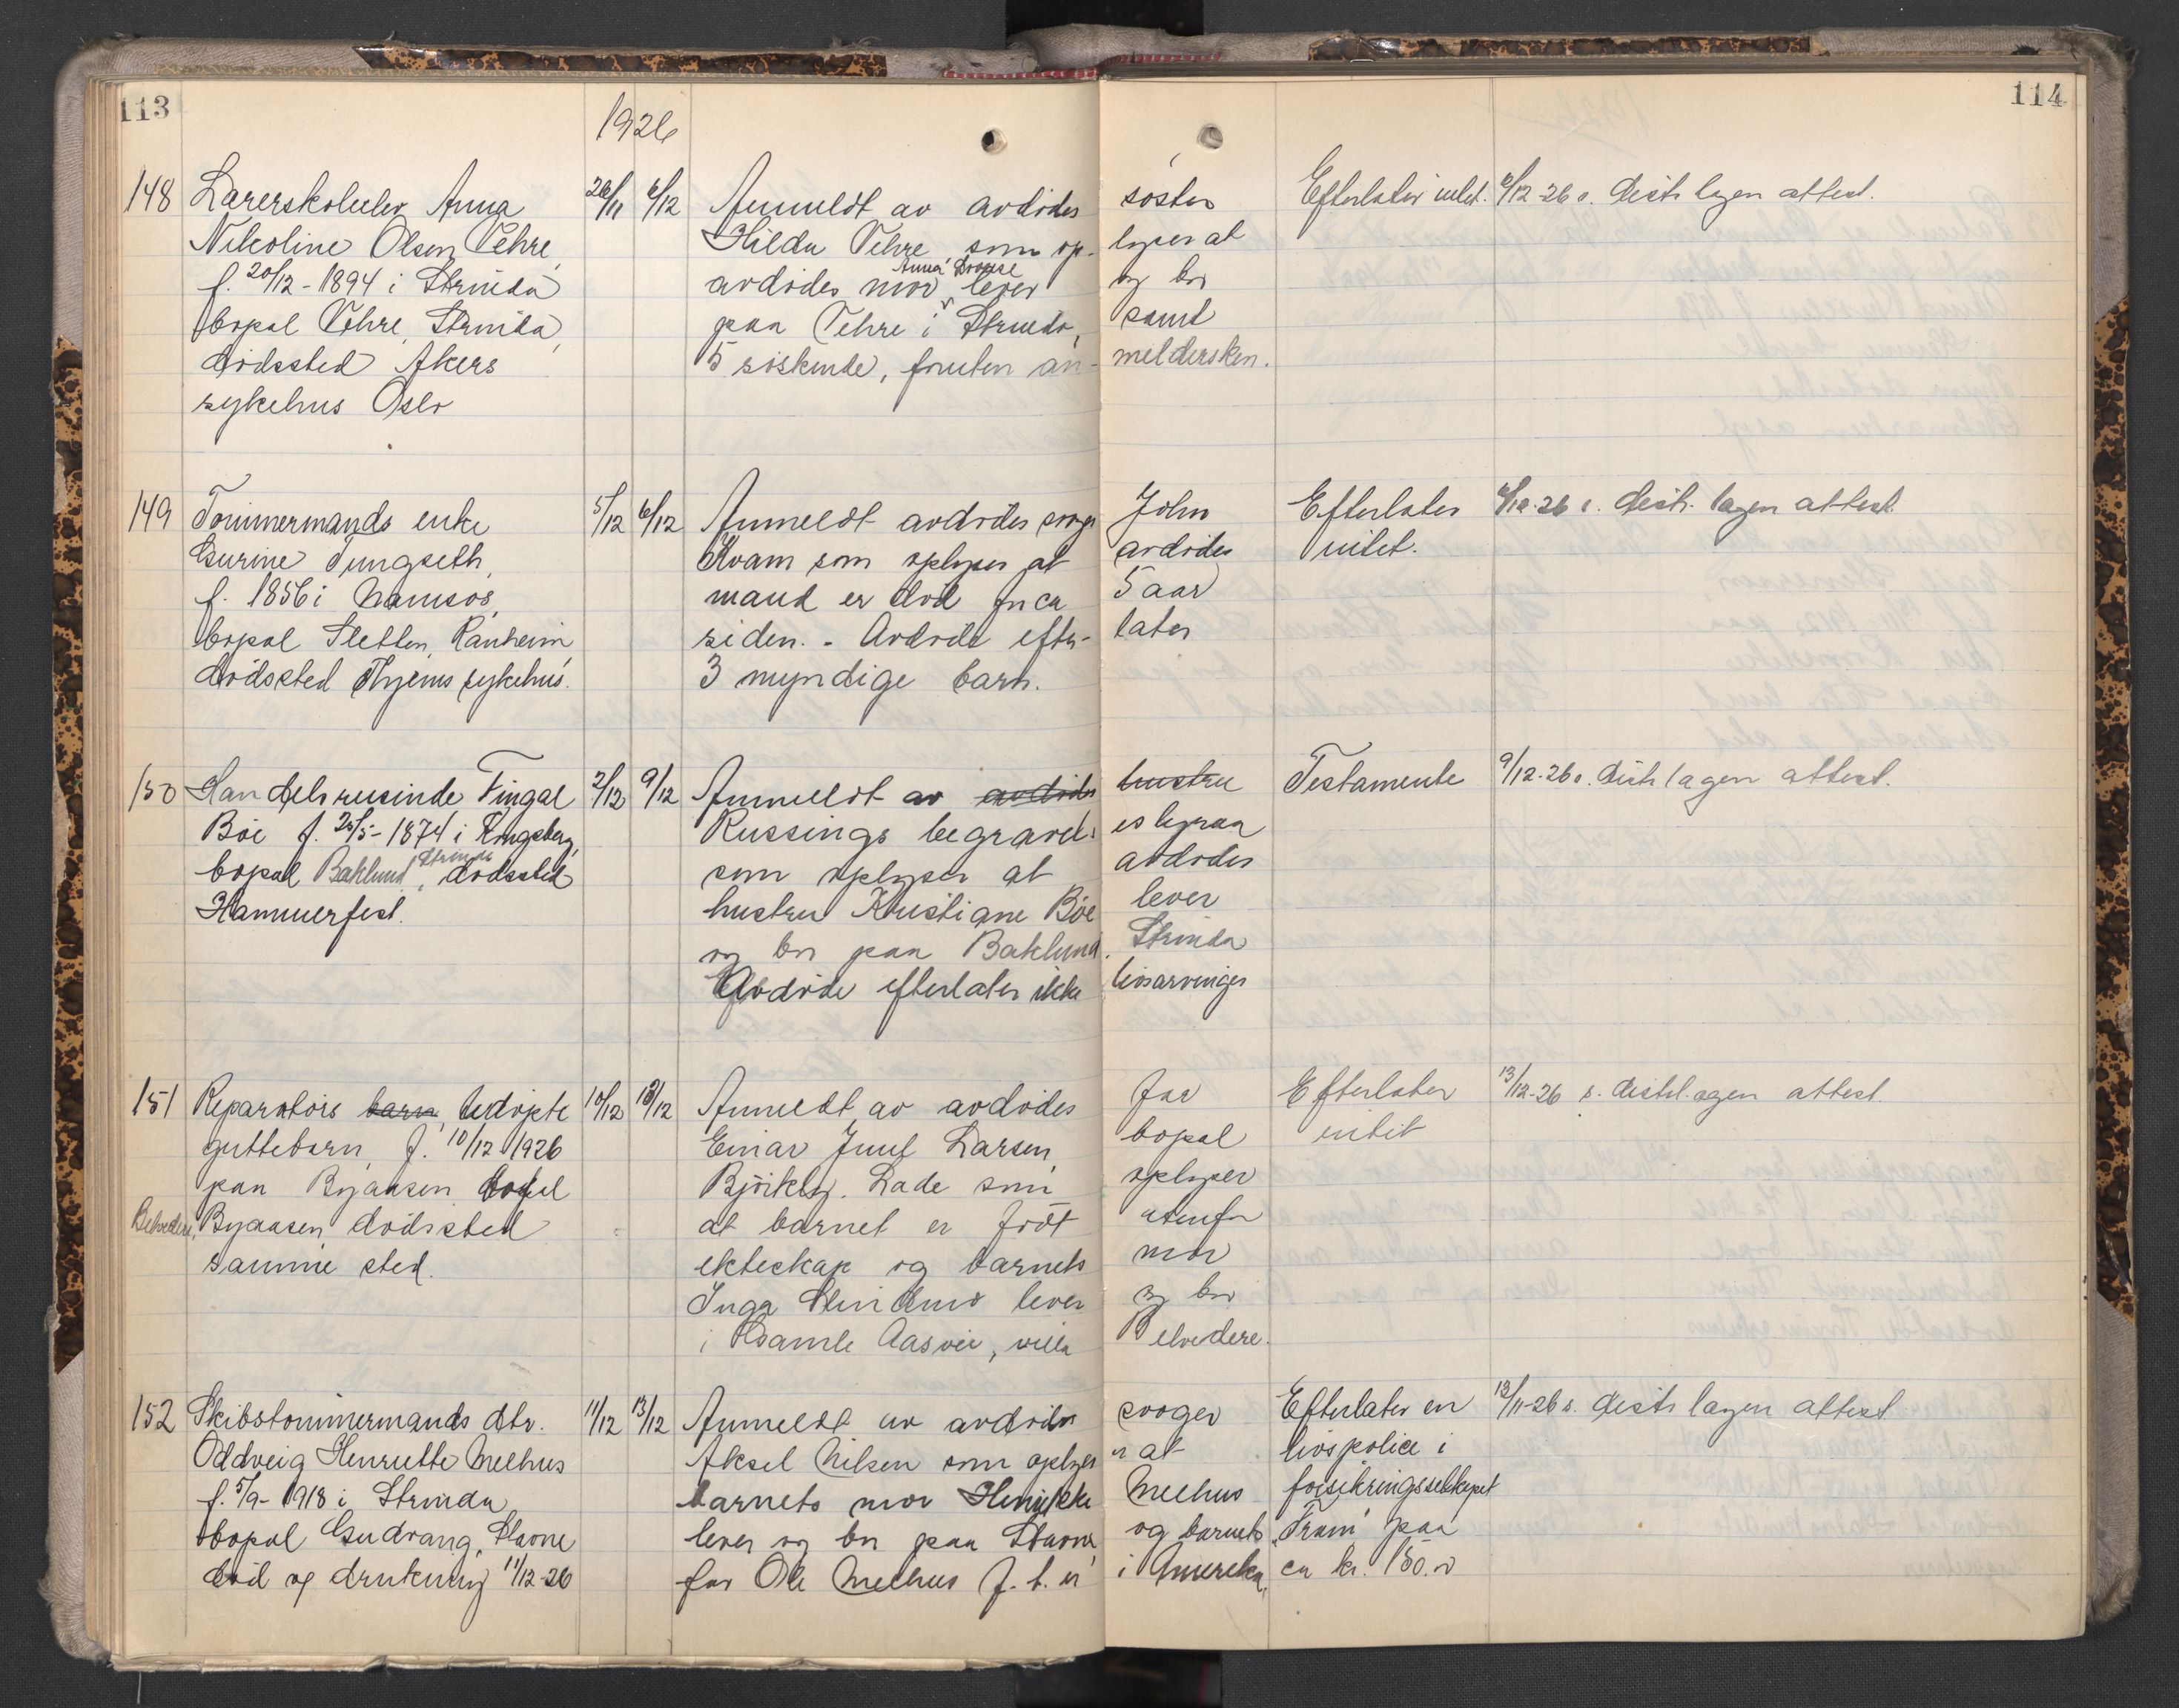 113
114
1926
148 Lærerskoleelev Anna 26/11 6/12 Anmeldt av avdødes søster Efterlater intet. 6/12-26 s. distr lagen attest.
Nikoline Olsen Vehre, Hilda Vehre som op- lyser at
Anna Lovise
f. 20/12-1894 i Strinda avdødes mor lever og bor
bopæl Vehre, Strinda, paa Vehre i Strinda, samt
dødssted Akers 5 søskende, foruten an- meldersken.
sykehus Oslo
149 Tømmermands enke 5/12 6/12 Anmeldt avdødes svoger John Efterlater 6/12-26 s. distr. lagen attest.
Gurine Tungseth, Kvam som oplyser at avdødes intet.
f. 1856 i Namsos, mand er død for ca 5 aar
bopæl Sletten, Ranheim siden. - Avdøde efter- later
dødssted Thyems sykehus. 3 myndige barn.
150 Handelsreisende Fingal 2/12 9/12 Anmeldt av avdødes hustru Testamente 9/12-26 s. distr lagen attest.
Böe f. 25/5-1874 i Kongsberg, Russings begravels esbyraa
Strinda
bopæl Baklund, dødssted som oplyser at avdødes
Hammerfest. hustru Kristiane Böe lever
og bor paa Baklund, Strinda
Avdøde efterlater ikke livsarvinger
151 Reparatørs barn, udøpte 10/12 13/12 Anmeldt av avdødes far Efterlater 13/12-26 s. distrl.agen attest.
guttebarn, f. 10/12 1926 Einar Juul Larsen, bopæl intet
paa Byaasen bopæl Björkly. Lade som oplyser
Belvedere, Byaasen dødssted at barnet er født utenfor
samme sted. ekteskap og barnets mor
Inga lever og bor
i Gamle Aasvei, villa Belvedere.
152 Skibstømmermands dtr. 11/12 13/12 Anmeldt av avdødes svoger Efterlater en 13/11-26 s. distr lagen attest
Oddveig Henriette Melhus Aksel Nilsen som oplyser at livspolice i
f. 5/9-1918 i Strinda barnets mor Henrikke Melhus forsikringsselskapet
bopæl Gudvang, Stavne lever og bor paa Stavne, og barnets "Fram" paa
død og drukning 11/12-26 far Ole Melhus f. t. er i Amerika, ca kr. 150.00